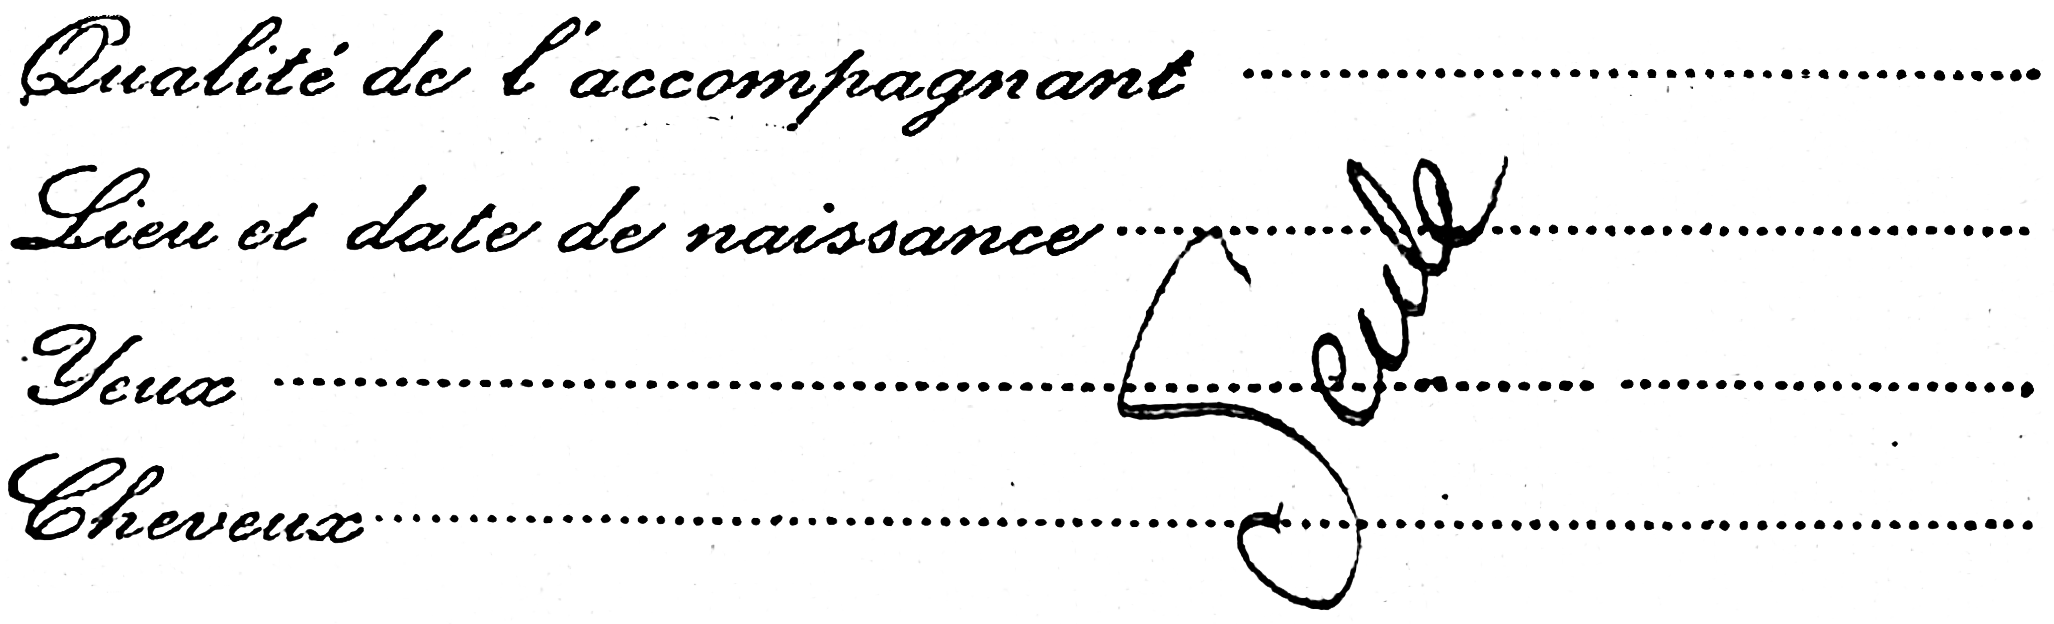 Qualité de l'accompagnant
Lieu et date de naissance
Yeux
Cheveux
Seule